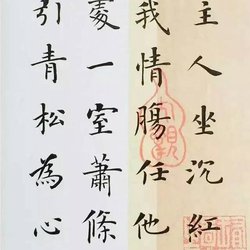 主人坐沉紅
我情腸任他
夌一室蕭條
引青松為心